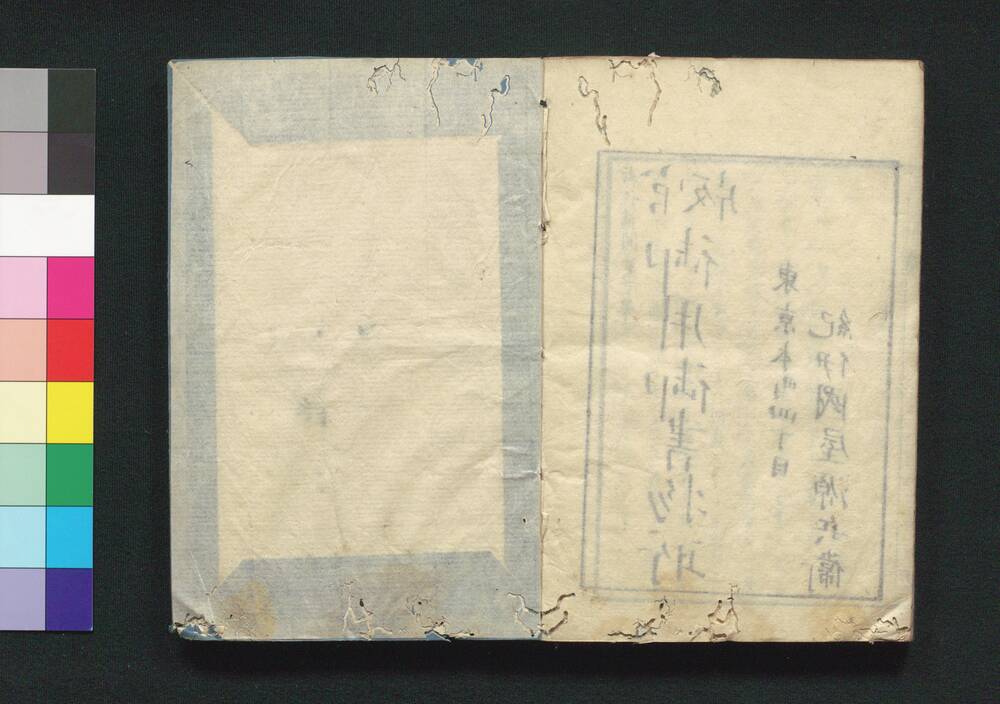 官版
御用御書物所
東京本町四丁目
紀伊國屋源兵衛